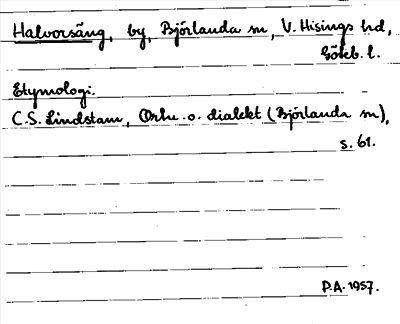 Halvorsäng, by, Björlanda sn, V. Hisings hd,
Göteb. l.
Etymologi.
C.S. Lindstam, Ortn. o. dialekt (Björlanda sn),
s. 61.
P.A. 1957.